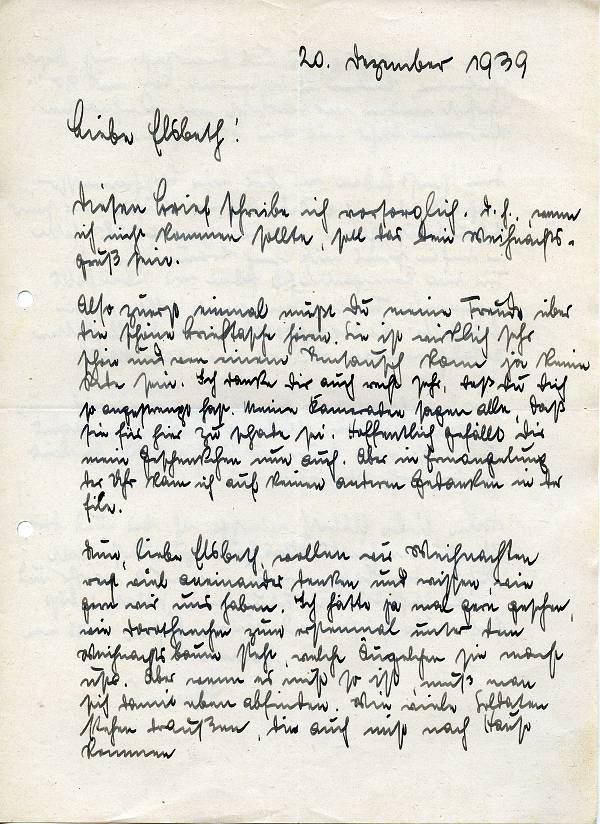 20. Dezember 1939
Liebe Elsbeth!
Diesen Brief schreibe ich vorsorglich. d.h., wenn
ich nicht kommen sollte, soll das Dein Weihnachts-
gruß sein.
Also zuerst einmal mußt Du meine Freude über
die schöne Brieftasche hören. Sie ist wirklich sehr
schön und von einem Umtausch kann ja keine
Rede sein. Ich danke Dir auch recht sehr, daß Du Dich
so angestrengt hast. Meine Kameraden sagen alle, daß
sie für hier zu schade sei. Hoffentlich gefällt Dir
mein Geschenkchen nun auch. Aber in Ermangelung
der Uhr kam ich auf keinen anderen Gedanken in der
Eile.
Nun, liebe Elsbeth, wollen wir Weihnachten
recht viel aneinander denken und wissen, wie
gern wir uns haben. Ich hätte ja mal gern gesehen,
wie Dorotheechen zum erstenmal unter dem
Weihnachtsbaum steht, welche Äugelchen sie macht
usw. Aber wenn es nicht so ist, muß man
sich damit eben abfinden. Wie viele Soldaten
stehen draußen, die auch nicht nach Hause
kommen